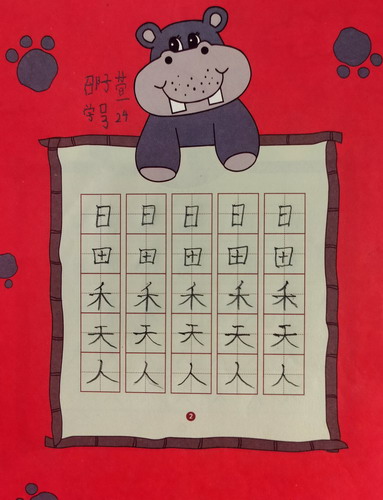 学号 24
日 日 日 日 日
田 田 田 田 田
禾 禾 禾 禾 禾
天 天 天 天 天
人 人 人 人 人
2